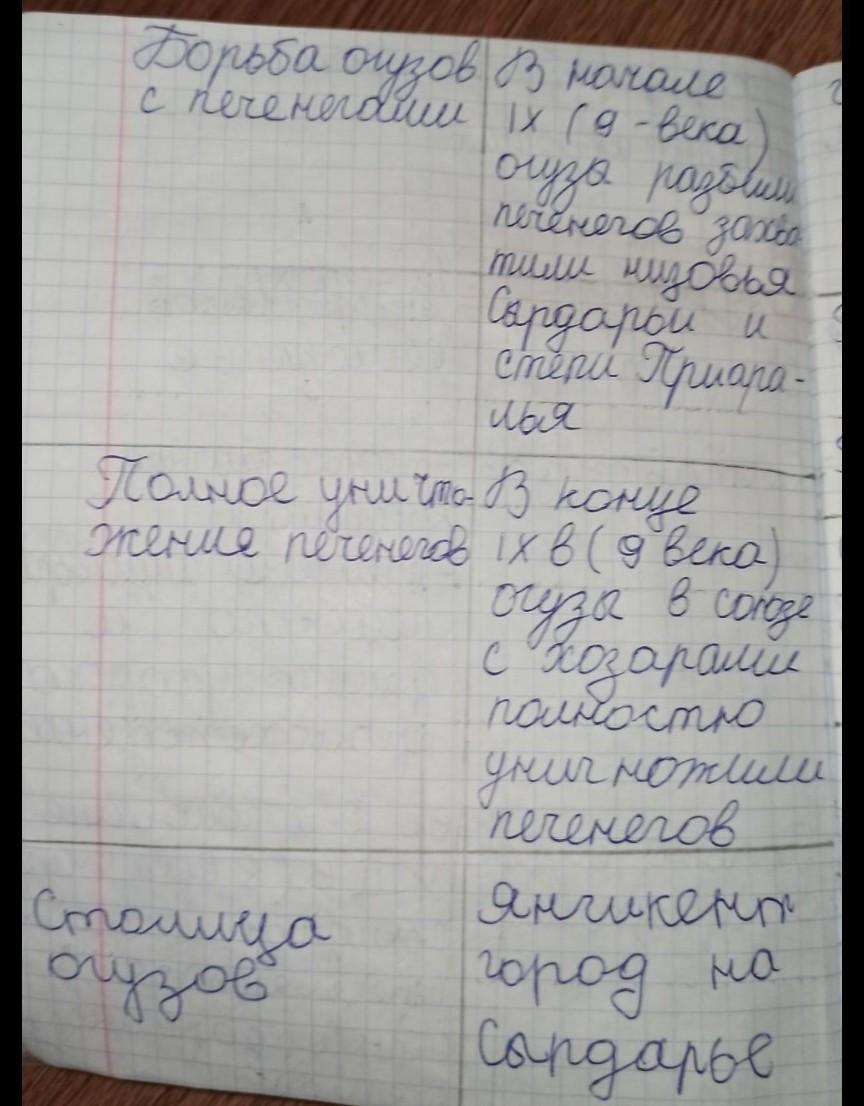 Борьба огузов
с печенегами
В начале
IX (9-века)
огузы разбили
печенегов захва
тили низовья
Сырдарьи и
степи Приара-
лья
Полное уничто-
жение печенегов
В конце
IX в (9 века)
огузы в союзе
с хозарами
полностю
уничножили
печенегов
Столица
огузов
Янгикент
город на
Сырдарье